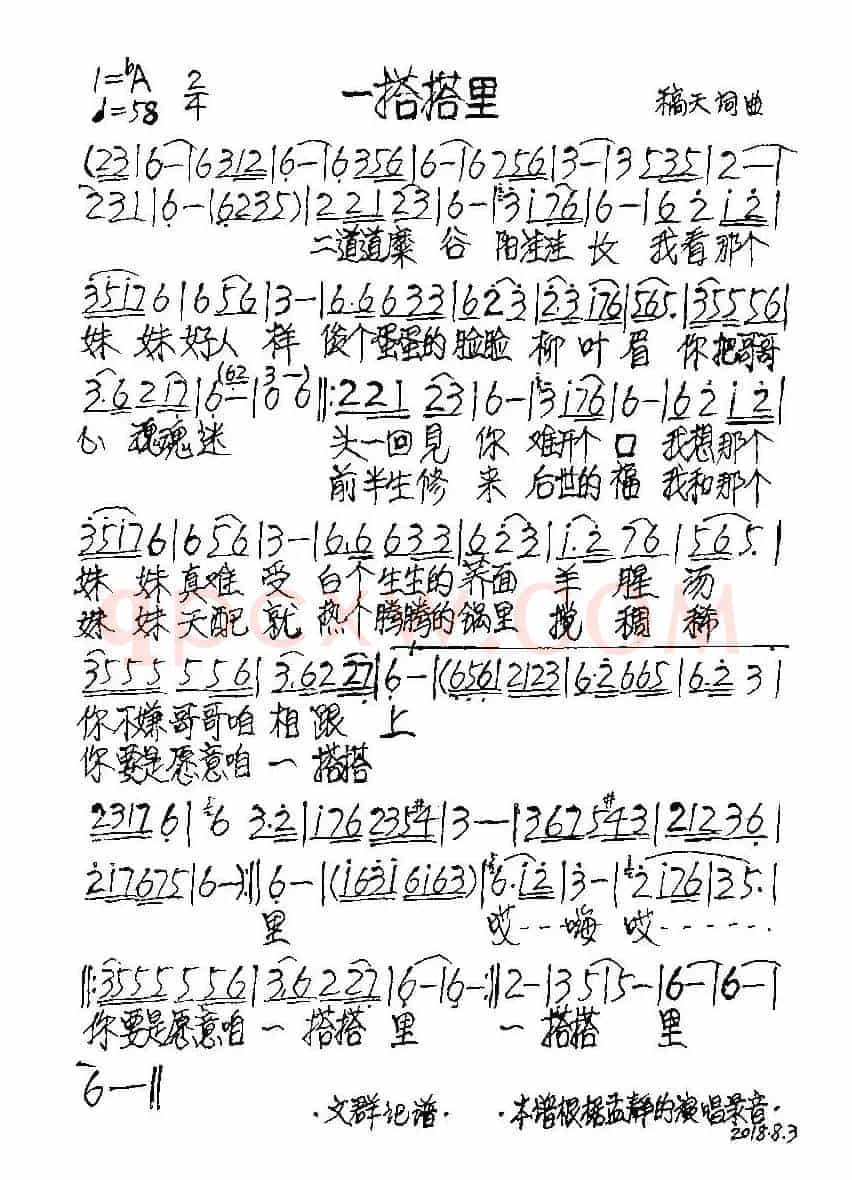 1=bA 2/4
♩=58
一搭搭里
稿天词曲
(23|6—|6312|6—|6356|6—|6256|3—|3535|2—|
231|6—|(6235)|22123|6—|3i76|6—|62i2|
二道道糜 谷 阳洼洼 长 我看那个
35i76|656|3—|6.6633|623|2.3i76|565.|355556|
妹 妹好人 样 俊个蛋蛋的脸脸 柳叶眉 你把哥哥
3.6217|6—(62|3—)06|‖:22123|6—|3i76|6—|62i2|
心 魂魂迷 头一回见 你 难开个 口 我想那个
前半生修 来 后世的福 我和那个
35i76|656|3—|6.6633|623|i.276|565.|
妹 妹真难 受 白个生生的荞面 羊 腥 汤
妹 妹天配 就 热个腾腾的锅里 搅 稠 稀
qpcxw.COM
3555556|3.6227|6—|(65612123|6.2665|6.23|
你不嫌哥哥咱 相 跟 上
你要是愿意咱 一 搭搭
23176|63.2|i76235#4|3—|3675#43|21236|
2i7675|6—):‖6—|(i63i6i63)|6.i2|3—|2i76|35.|
里 哎---嗨 哎------
‖:35555556|3.6227|6—|6—:‖2—|35|5—|6—|6—|
你要是愿意咱 一 搭搭 里 一 搭搭 里
6—‖
·文群记谱· ·本谱根据孟静的演唱录音·
2018.8.3